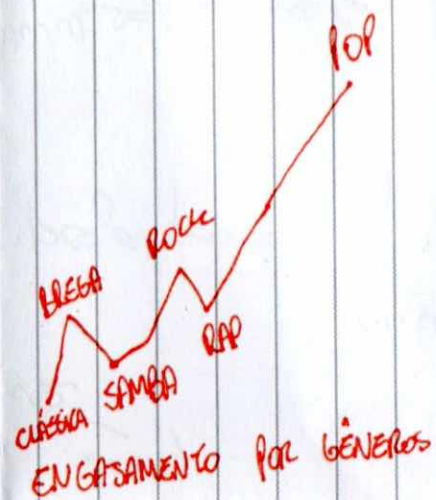 POP
ROCK
BREGA
RAP
SAMBA
CLÁSSICA
ENGAJAMENTO POR GÊNEROS